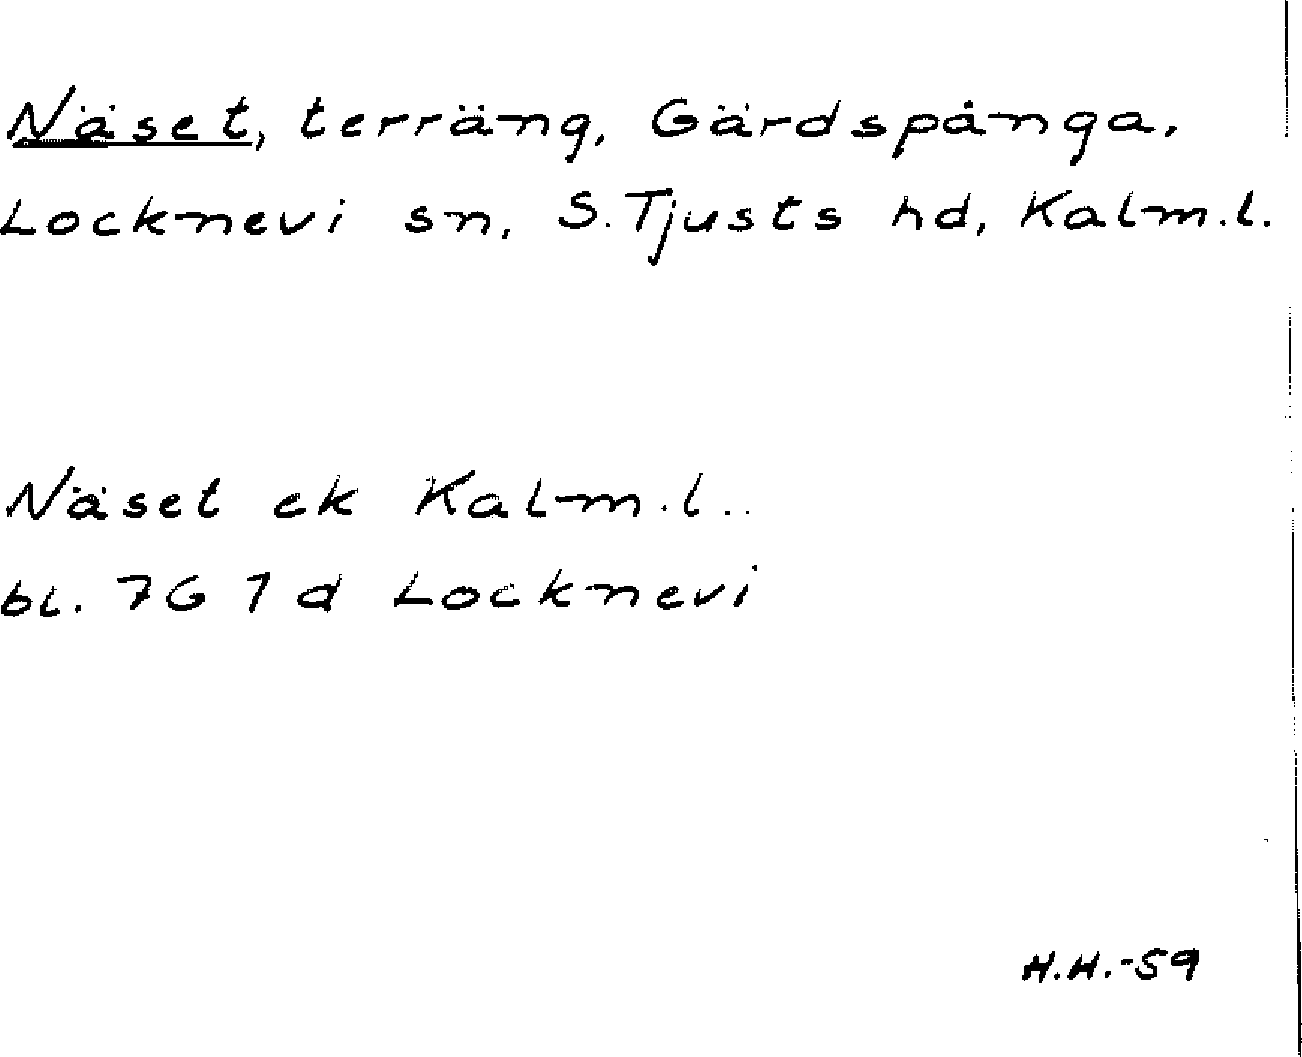 Näset, terräng, Gärdspånga,
Locknevi sn, S. Tjusts hd, Kalm.l.
Näset ek Kalm.l..
bl. 7G 1 d Locknevi
H.H.-59